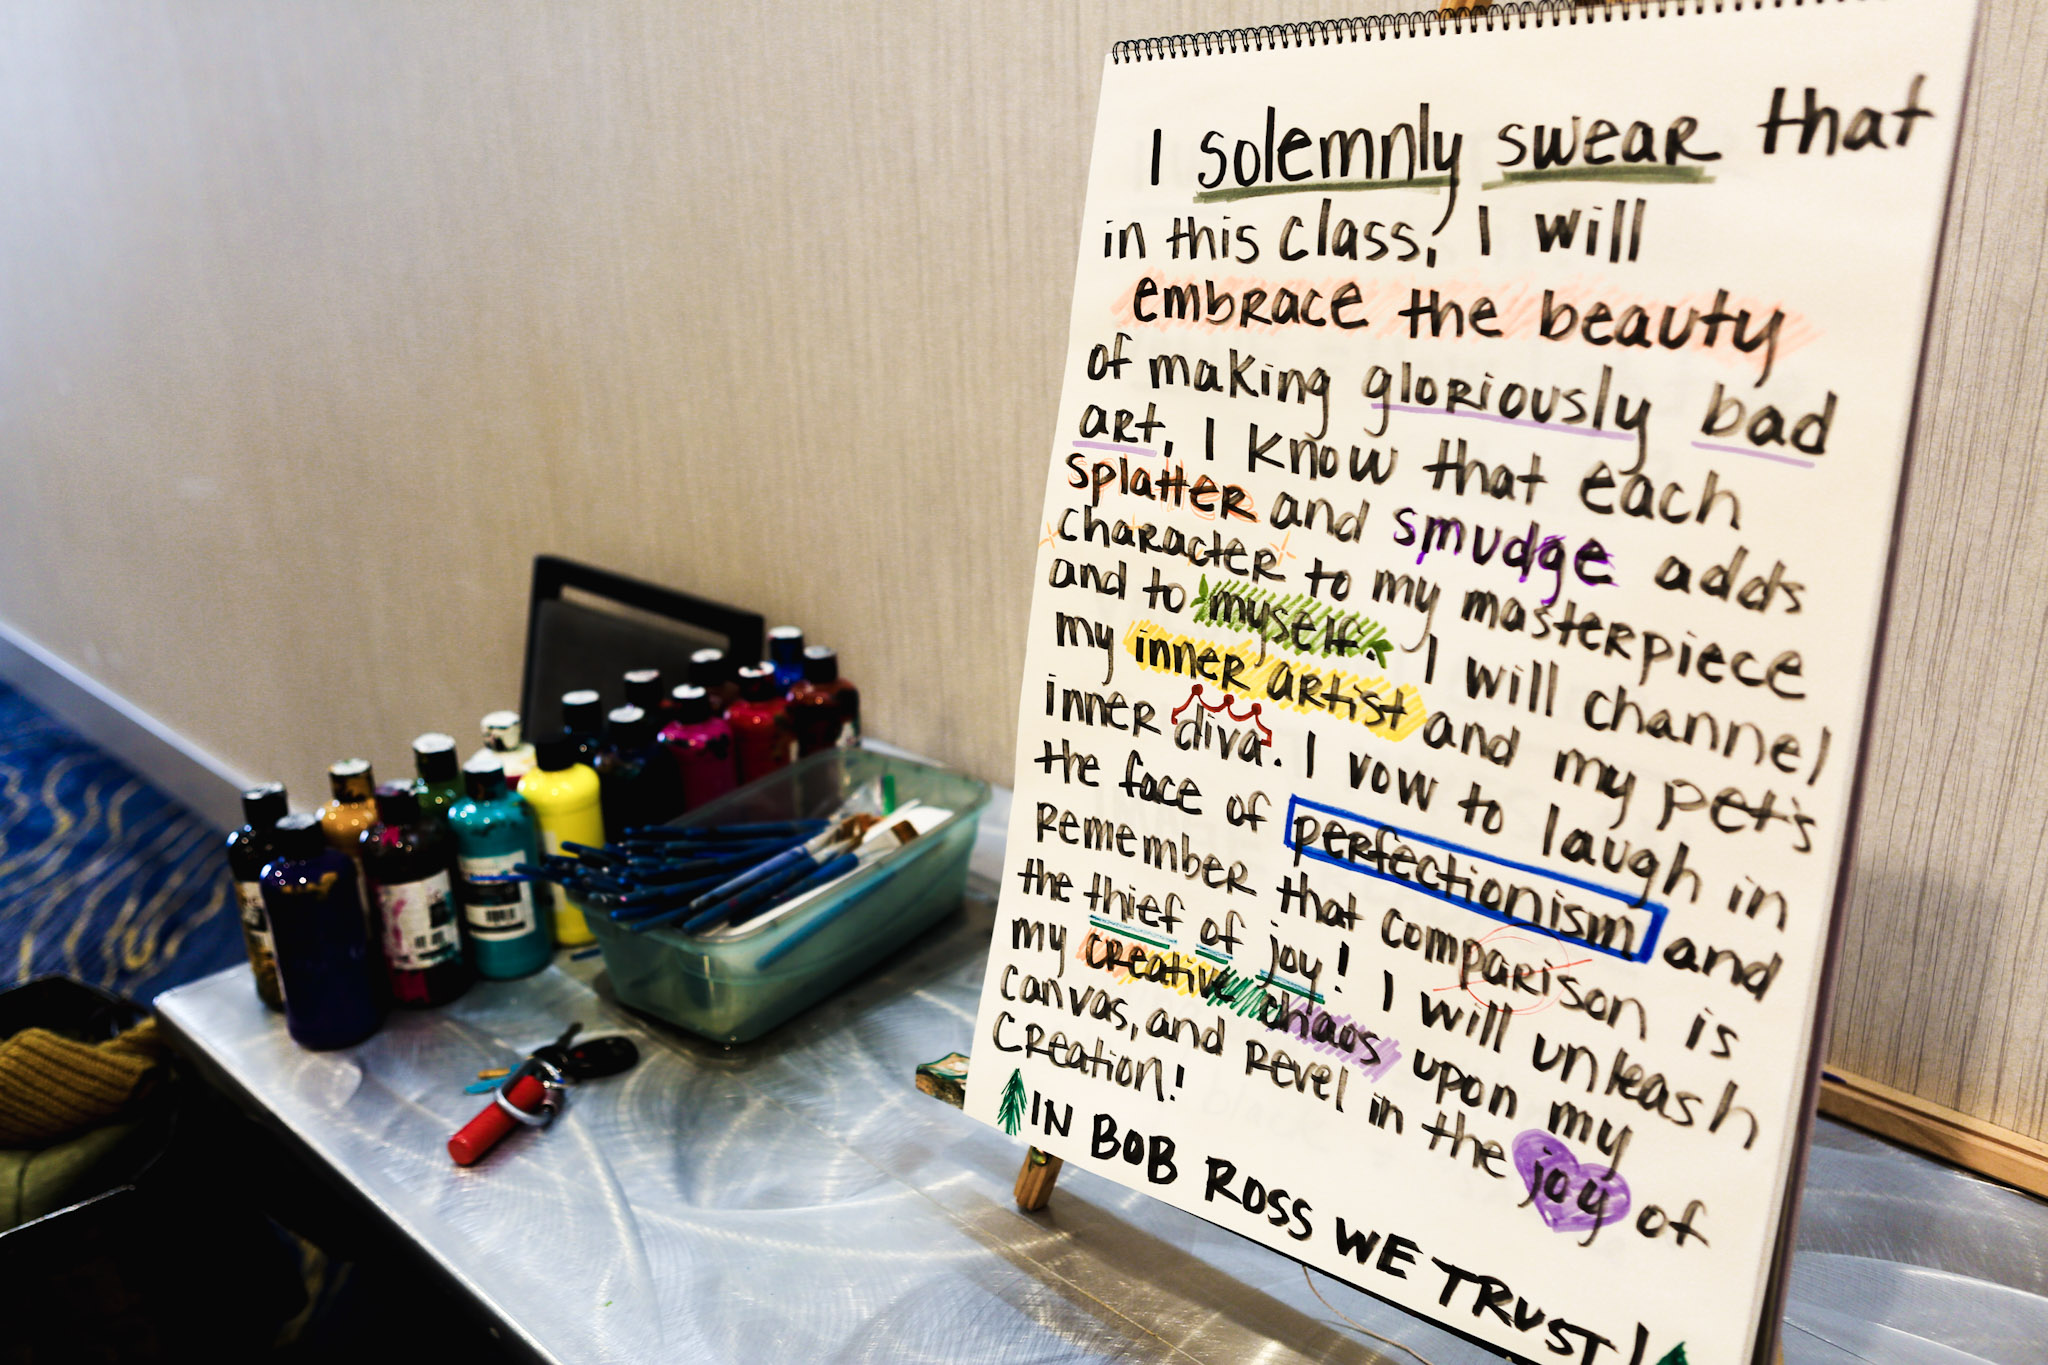 I solemnly swear that
in this class, I will
embrace the beauty
of making gloriously bad
art, I know that each
splatter and smudge adds
character to my masterpiece
and to myself. I will channel
my inner artist and my pet's
inner diva. I vow to laugh in
the face of perfectionism and
remember that comparison is
the thief of joy! I will unleash
my creative chaos upon my
canvas, and revel in the joy of
creation!
IN BOB ROSS WE TRUST!